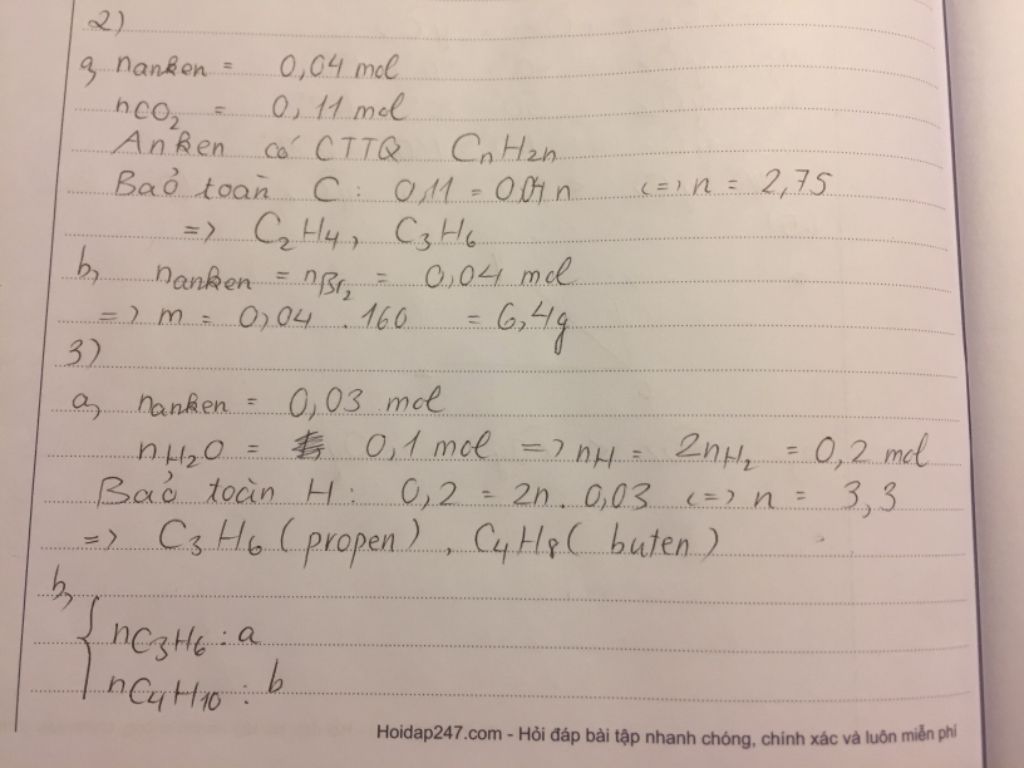 2)
a, nanken = 0,04 mol
nCO2 = 0,11 mol
Anken có CTTQ CnH2n
Bảo toàn C: 0,11 = 0,04 n <=> n = 2,75
=> C2H4, C3H6
b, nanken = nBr2 = 0,04 mol
=> m = 0,04 . 160 = 6,4g
3)
a, nanken = 0,03 mol
nH2O = 0,1 mol => nH = 2nH2 = 0,2 mol
Bảo toàn H: 0,2 = 2n . 0,03 <=> n = 3,3
=> C3H6 (propen), C4H8 (buten)
b,
{ nC3H6 : a
nC4H10 : b
Hoidap247.com - Hỏi đáp bài tập nhanh chóng, chính xác và luôn miễn phí